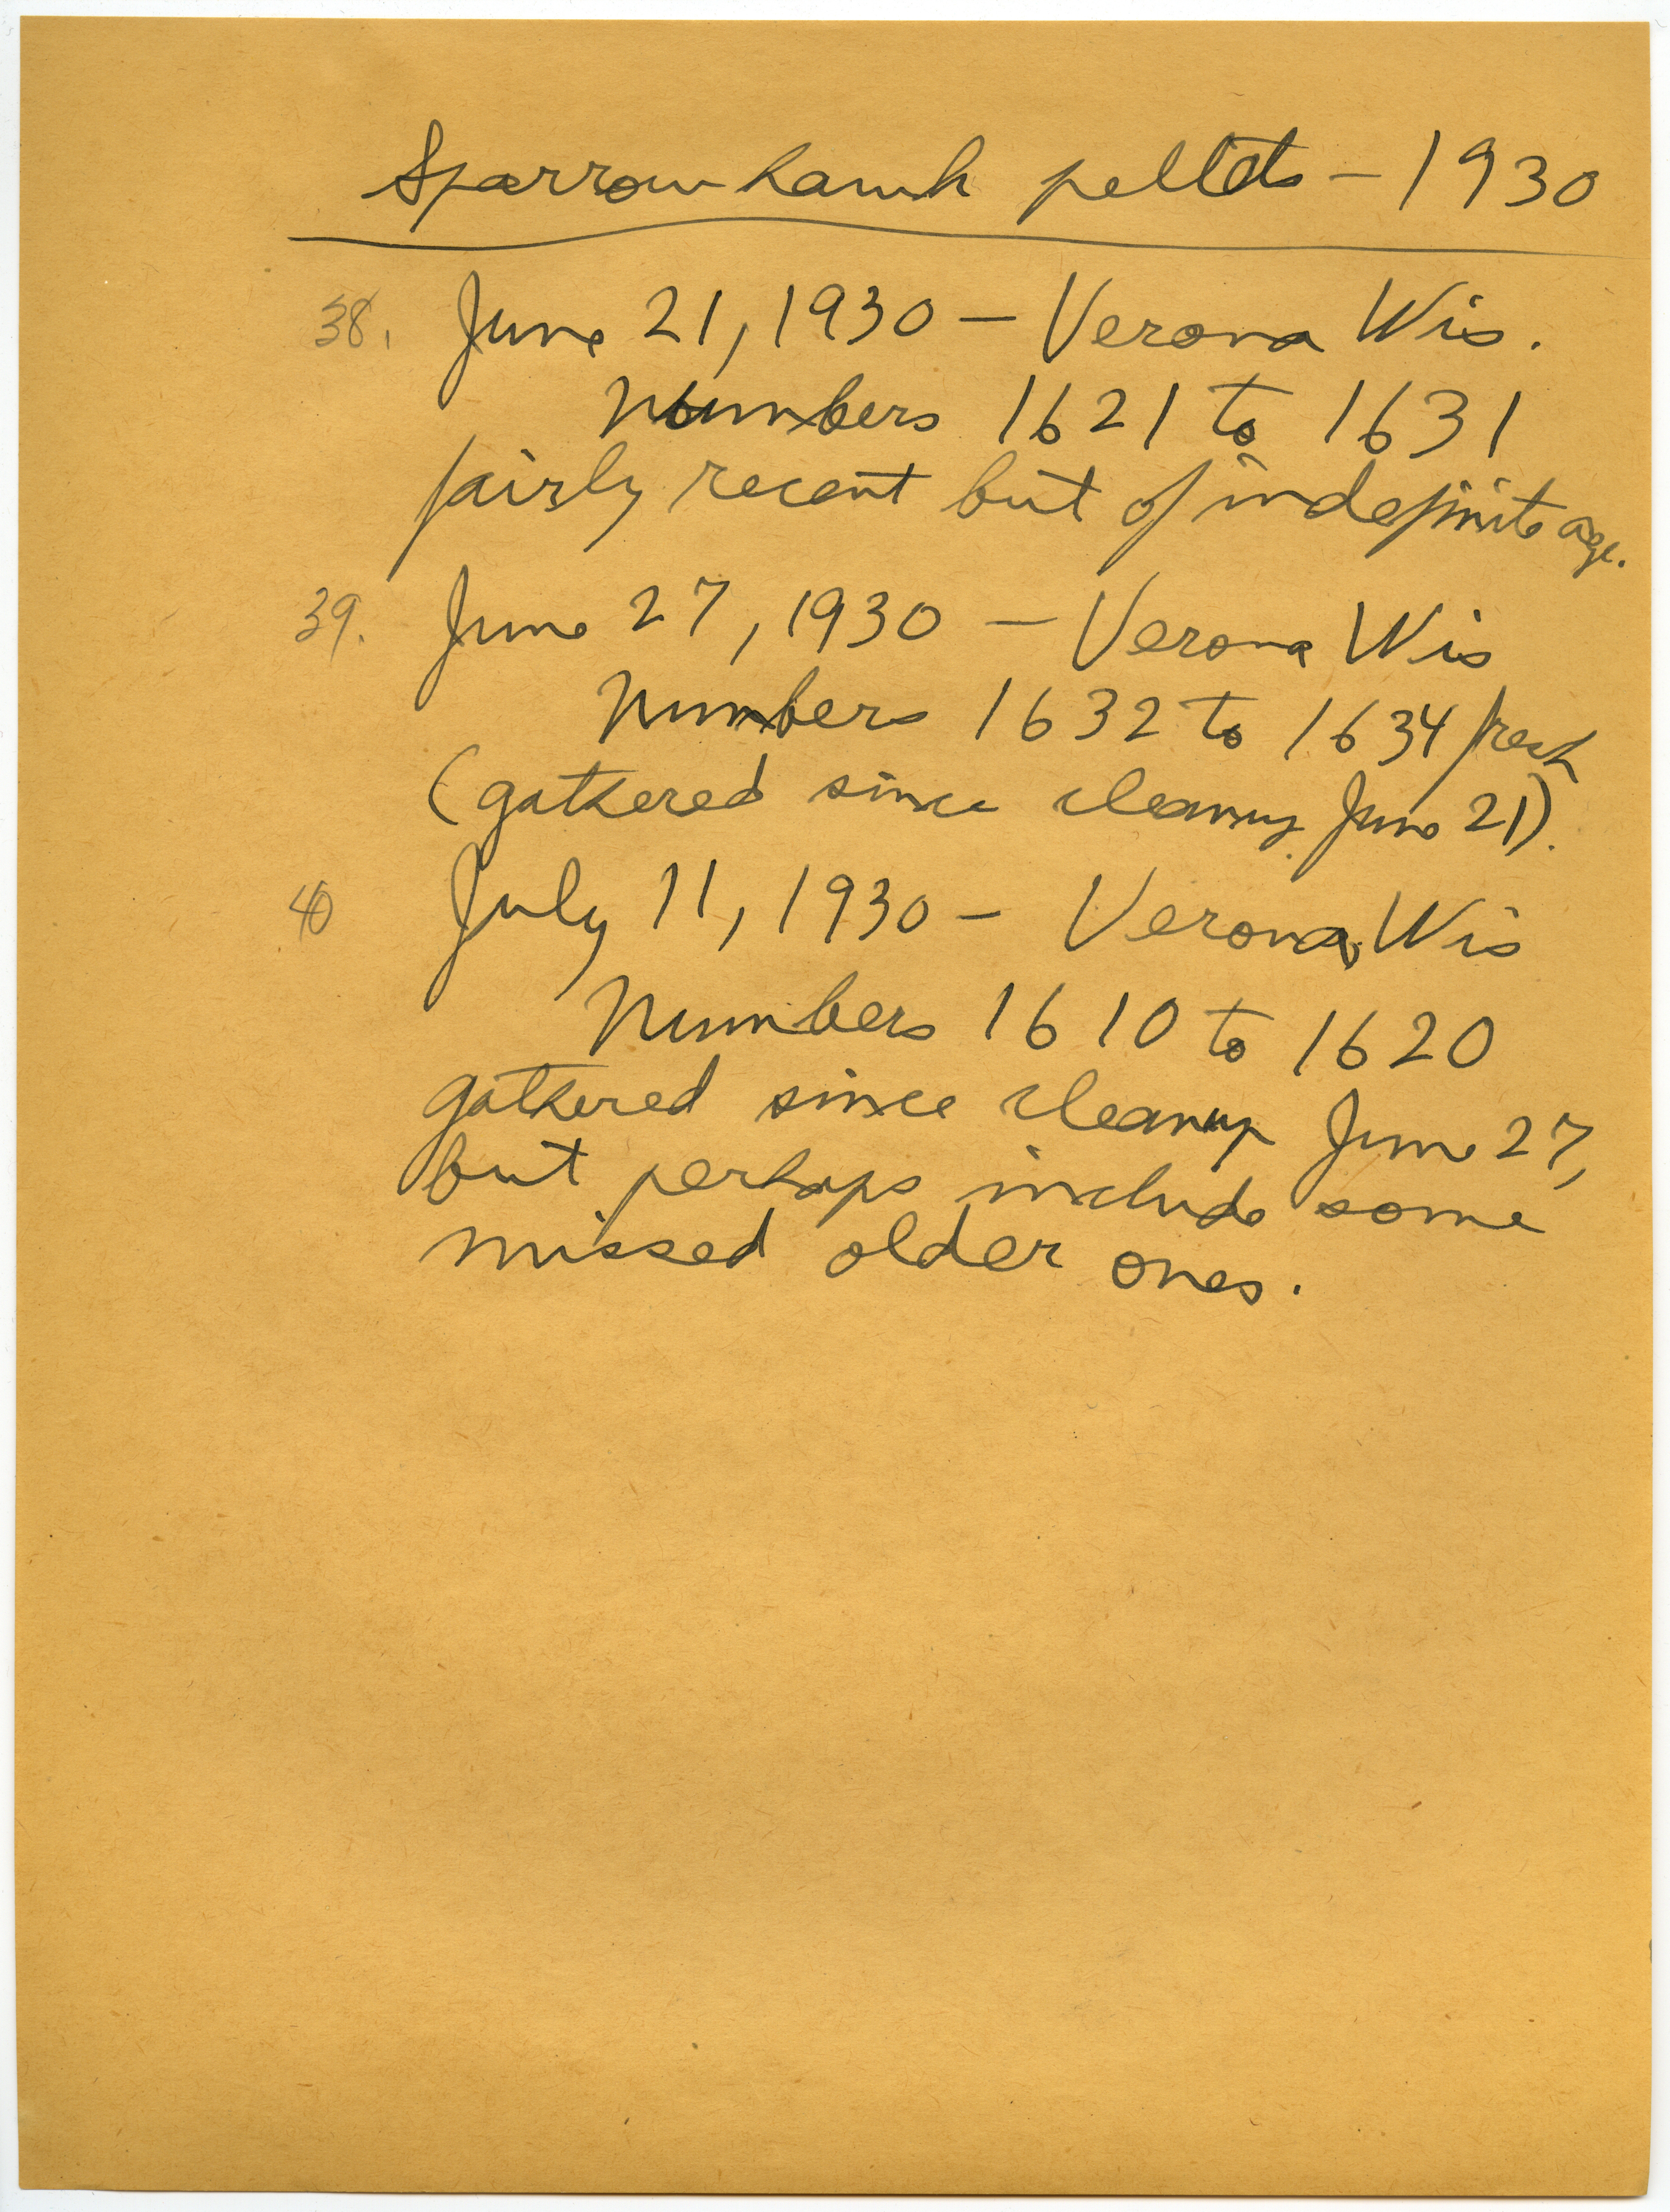 Sparrow hawk pellets - 1930
38. June 21, 1930 - Verona Wis.
Numbers 1621 to 1631
fairly recent but of indefinite age.
39. June 27, 1930 - Verona Wis
Numbers 1632 to 1634 fresh
(gathered since cleanup June 21).
40 July 11, 1930 - Verona, Wis
Numbers 1610 to 1620
gathered since cleanup June 27,
but perhaps include some
missed older ones.